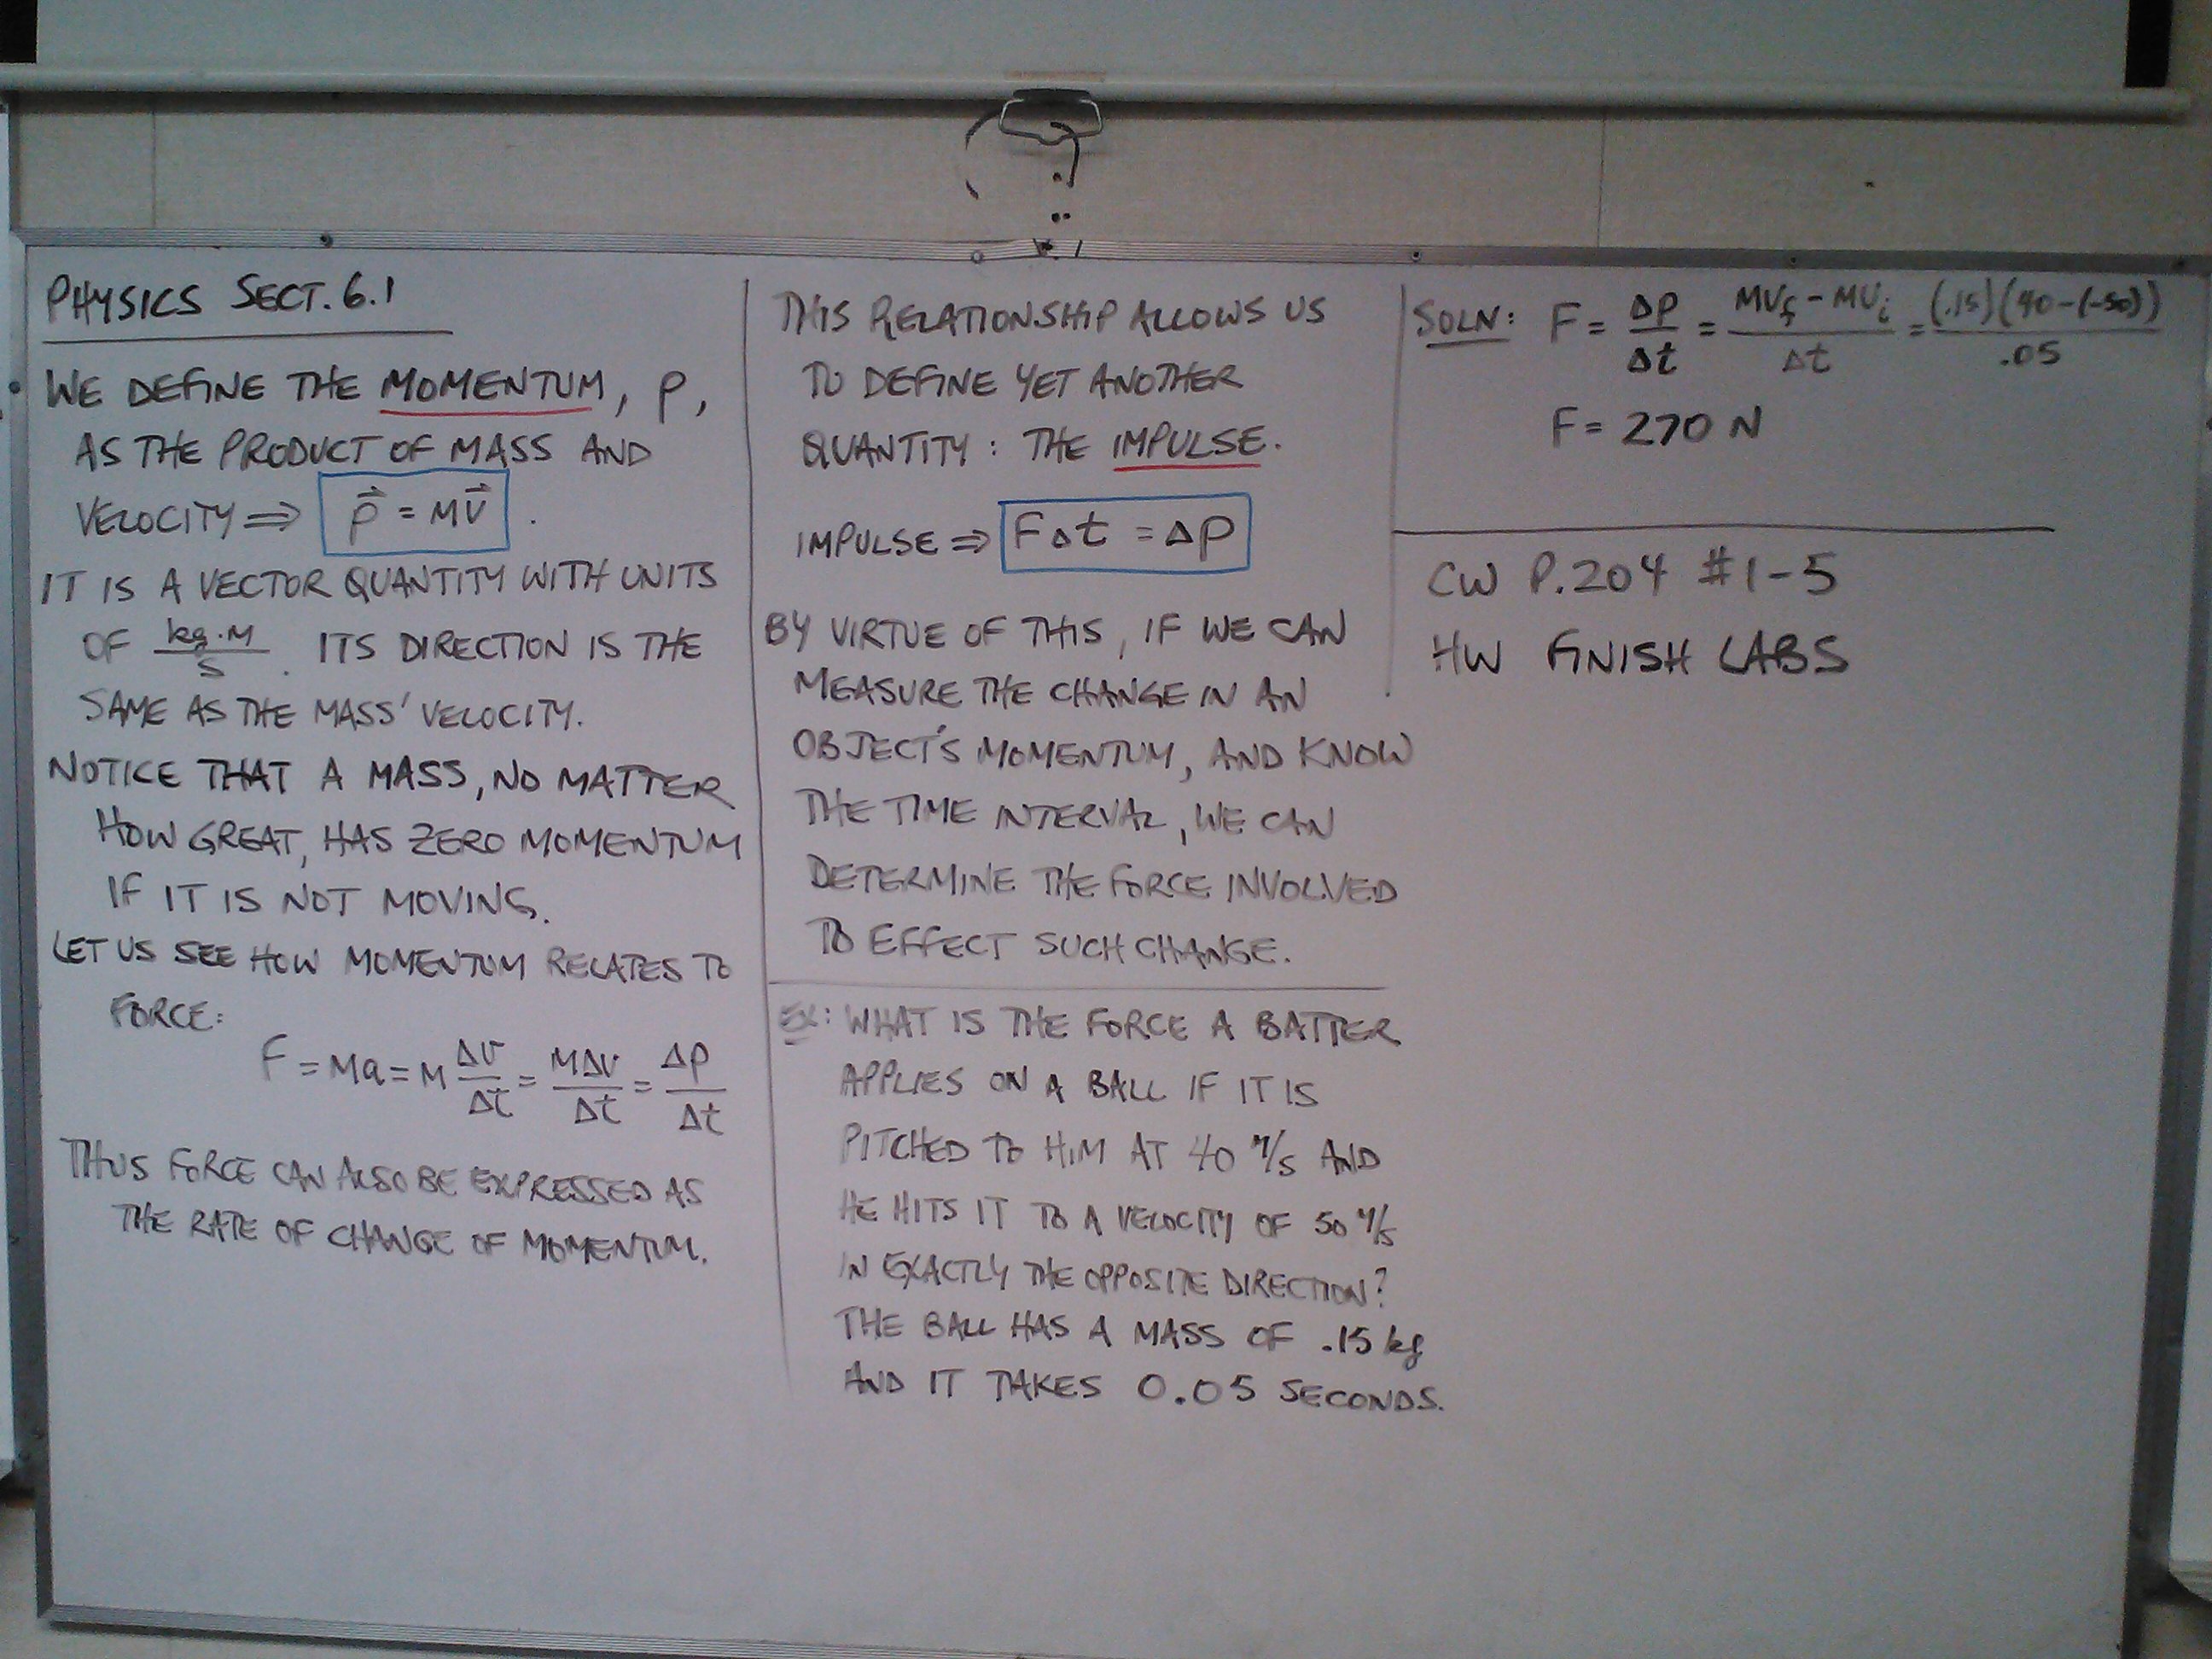 PHYSICS SECT. 6.1
WE DEFINE THE MOMENTUM, P,
AS THE PRODUCT OF MASS AND
VELOCITY ⇒ p⃗ = mv⃗ .
IT IS A VECTOR QUANTITY WITH UNITS
OF kg·m/s . ITS DIRECTION IS THE
SAME AS THE MASS' VELOCITY.
NOTICE THAT A MASS, NO MATTER
HOW GREAT, HAS ZERO MOMENTUM
IF IT IS NOT MOVING.
LET US SEE HOW MOMENTUM RELATES TO
FORCE:
F = ma = m Δv/Δt = mΔv/Δt = Δp/Δt
THUS FORCE CAN ALSO BE EXPRESSED AS
THE RATE OF CHANGE OF MOMENTUM.
THIS RELATIONSHIP ALLOWS US
TO DEFINE YET ANOTHER
QUANTITY: THE IMPULSE.
IMPULSE ⇒ FΔt = Δp
BY VIRTUE OF THIS, IF WE CAN
MEASURE THE CHANGE IN AN
OBJECT'S MOMENTUM, AND KNOW
THE TIME INTERVAL, WE CAN
DETERMINE THE FORCE INVOLVED
TO EFFECT SUCH CHANGE.
EX: WHAT IS THE FORCE A BATTER
APPLIES ON A BALL IF IT IS
PITCHED TO HIM AT 40 m/s AND
HE HITS IT TO A VELOCITY OF 50 m/s
IN EXACTLY THE OPPOSITE DIRECTION?
THE BALL HAS A MASS OF .15 kg
AND IT TAKES 0.05 SECONDS.
SOLN: F = Δp/Δt = (mv_f - mv_i)/Δt = (.15)(40-(-50))/.05
F = 270 N
CW P.204 #1-5
HW FINISH LABS